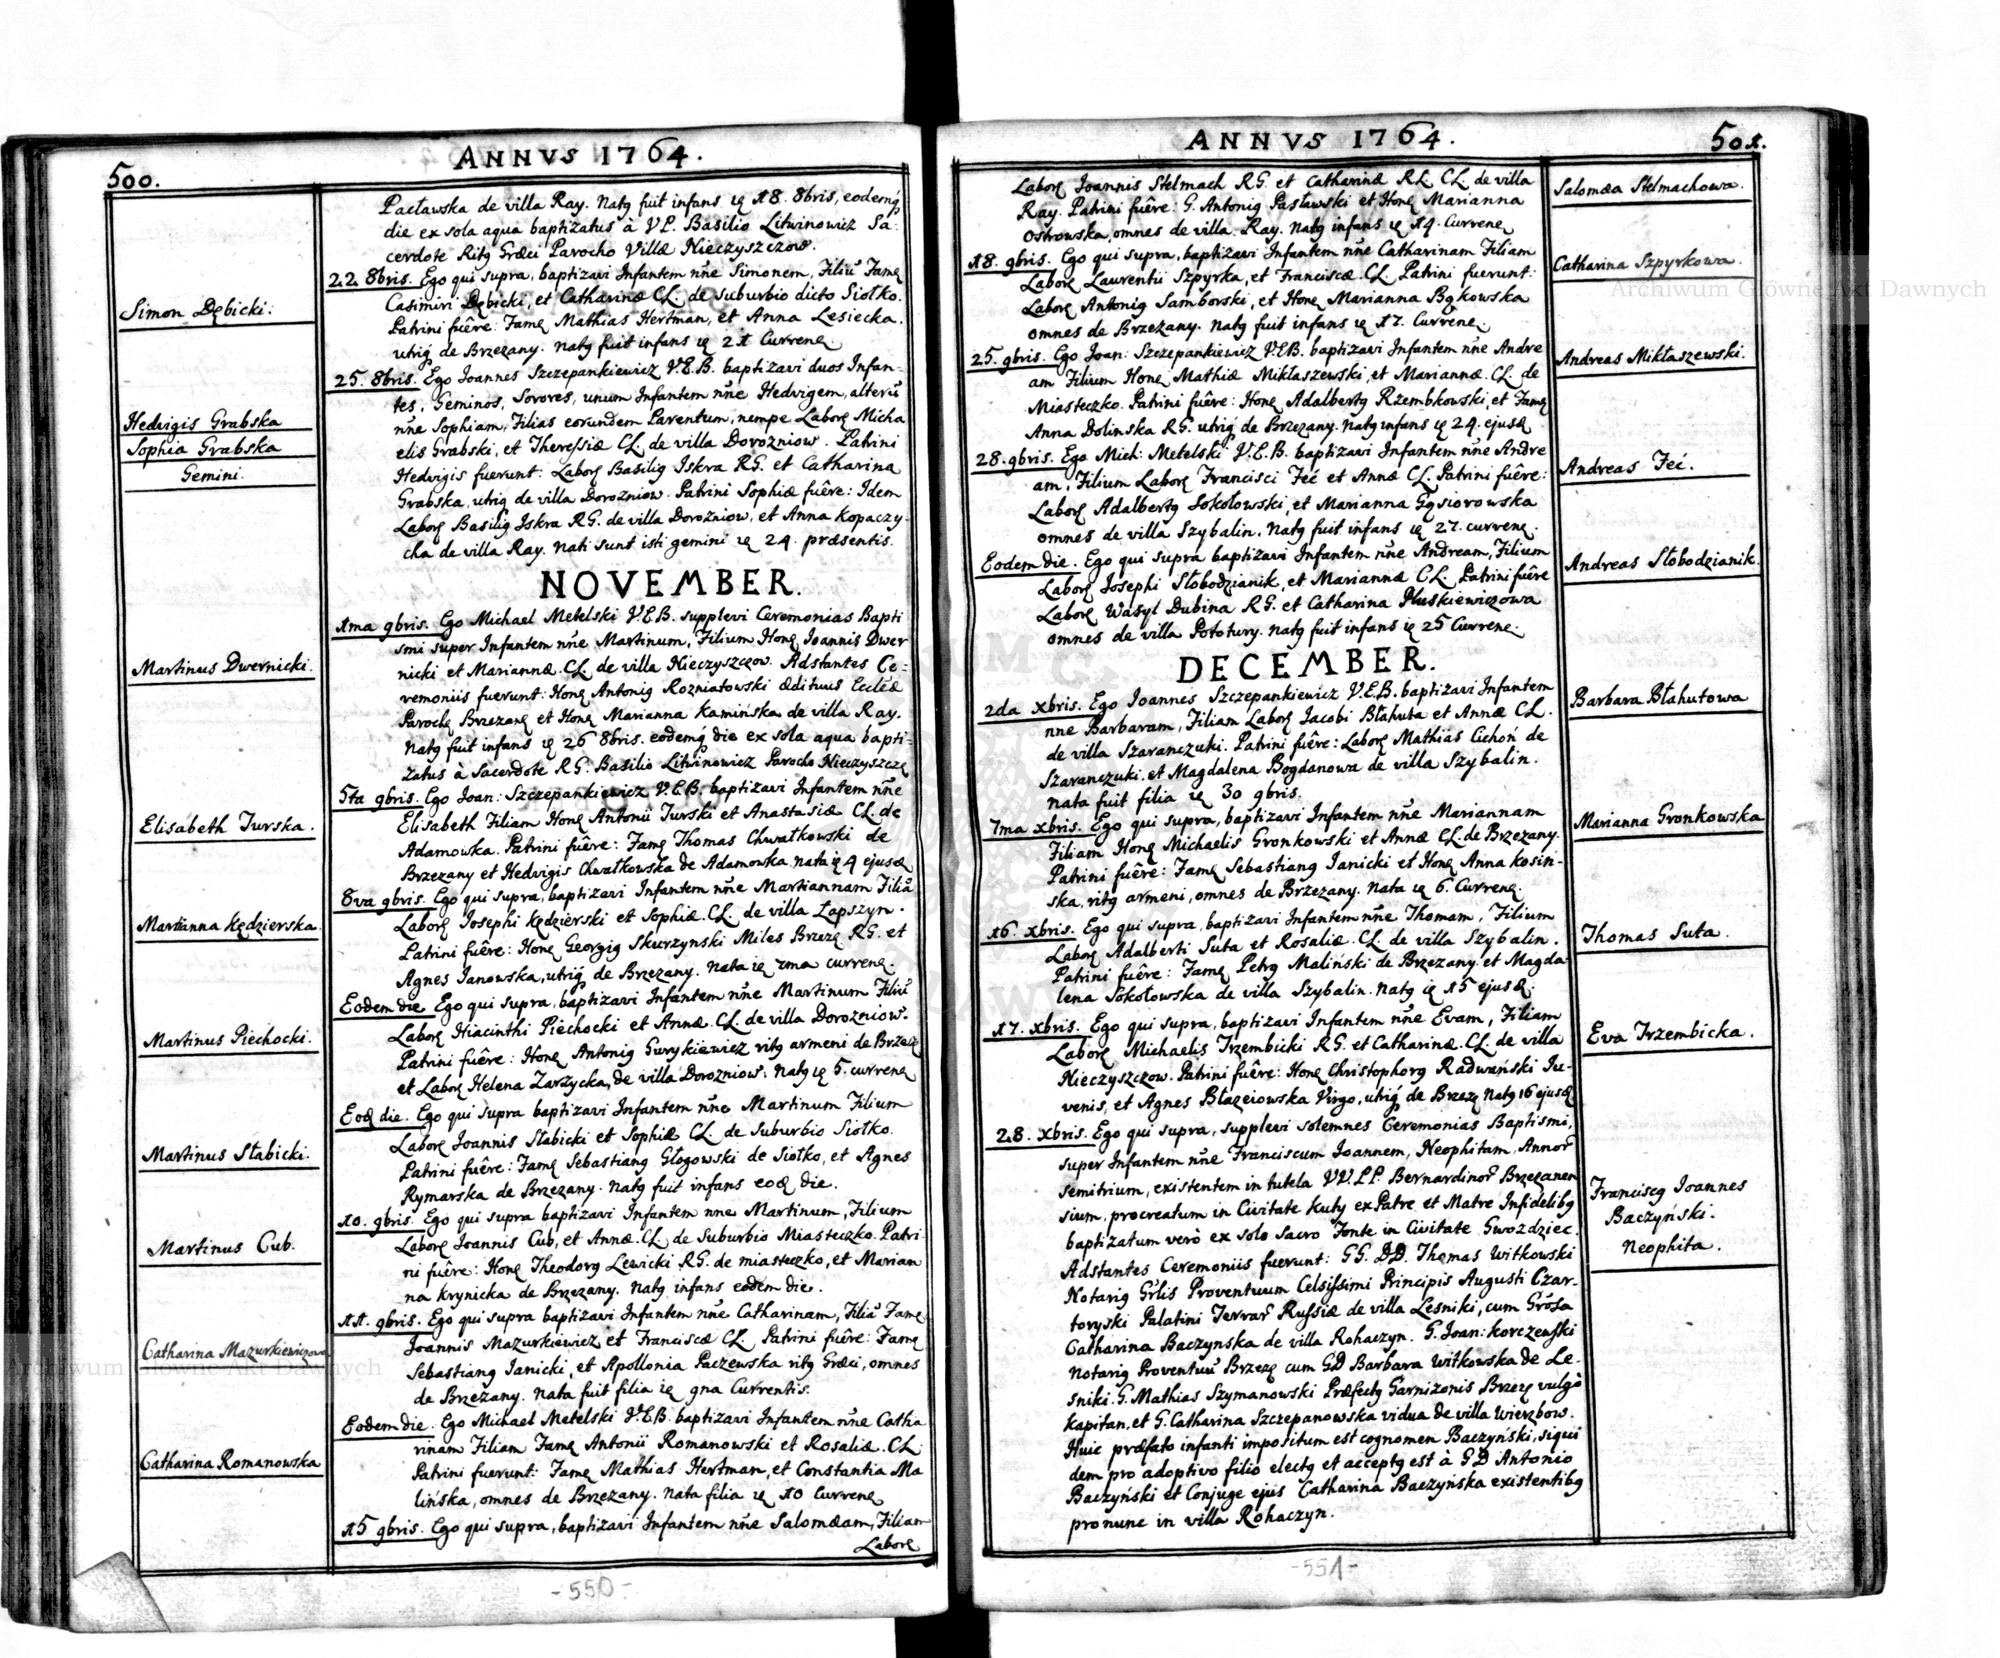 500.
ANNVS 1764.
Pacławska de villa Ray. Natꝯ fuit infans ię 18. 8bris, eodemq́
die ex sola aqua baptizatus à V.P. Basilio Litwinowicz Sa-
cerdote Ritꝯ Græci Parocho Villæ Nieczyszczow.
22 8bris. Ego qui supra, baptizavi Infantem nñe Simonem, Filiũ Famę
Simon Dębicki.
Casimiri Dębicki, et Catharinæ CL. de suburbio dicto Siołko.
Patrini fuêre: Famę Mathias Hertman, et Anna Lesiecka.
utriq́ de Brzezany. Natꝯ fuit infans ię 21 Currenę.
25. 8bris. Ego Joannes Szczepankiewicz V.E.B. baptizavi duos Infan-
tes, Geminos, Sorores, unum Infantem nñe Hedvigem, alterũ
Hedvigis Grabska
nñe Sophiam, Filias eorundem Parentum, nempe Laborę Micha
Sophia Grabska
elis Grabski, et Theressiæ CL. de villa Dorozniow. Patrini
Gemini.
Hedvigis fuerunt: Laborę Basiliꝯ Iskra RG. et Catharina
Grabska, utriq de villa Dorozniow. Patrini Sophiæ fuêre: Idem
Laborę Basiliꝯ Iskra RG. de villa Dorozniow, et Anna Kopaczy-
cha de villa Ray. Nati sunt isti gemini ię 24. præsentis.
NOVEMBER.
1ma 9bris. Ego Michael Metelski V.E.B. supplevi Ceremonias Bapti
smi super Infantem nñe Martinum, Filium Honę Joannis Dwer
Martinus Dwernicki.
nicki et Mariannæ CL. de villa Nieczyszczow. Adstantes Ce-
remoniis fuerunt: Honę Antoniꝯ Rozniatowski ædituus Ecclæ
Parochę Brzezanę et Honę Marianna Kamińska de villa Ray.
Natꝯ fuit infans ię 26 8bris. eodemq́ die ex sola aqua bapti-
zatus à Sacerdote RG. Basilio Litwinowicz Parocho Nieczyszczę
5ta 9bris. Ego Joan: Szczepankiewicz V.E.B. baptizavi Infantem nñe
Elisabeth Turska.
Elisabeth Filiam Honę Antonii Turski et Anastasiæ CL. de
Adamowka. Patrini fuêre: Famę Thomas Chwałkowski de
Brzezany et Hedvigis Chwałkowska de Adamowka. Nata ię 4 ejusđ
8va 9bris. Ego qui supra, baptizavi Infantem nñe Mariannam Filiã
Marianna Kędzierska.
Laborę Josephi Kędzierski et Sophiæ CL. de villa Łapszyn.
Patrini fuêre: Honę Georgiꝯ Skurzynski Miles Brzezę RG. et
Agnes Janowska, utriq́ de Brzezany. Nata ię 7ma currenę.
Eodem die Ego qui supra, baptizavi Infantem nñe Martinum Filiũ
Martinus Piechocki.
Laborę Hiacinthi Piechocki et Annæ CL. de villa Dorozniow.
Patrini fuêre: Honę Antoniꝯ Gurykiewicz ritꝯ armeni de Brzezę
et Laborę Helena Zarzycka, de villa Dorozniow. Natꝯ ię 5. currenę
Eođ die. Ego qui supra baptizavi Infantem nñe Martinum Filium
Martinus Słabicki.
Laborę Joannis Słabicki et Sophiæ CL. de Suburbio Siołko.
Patrini fuêre: Famę Sebastianꝯ Głogowski de Siołko, et Agnes
Rymarska de Brzezany. Natꝯ fuit infans eođ die.
10. 9bris. Ego qui supra baptizavi Infantem nñe Martinum, Filium
Martinus Cub.
Laborę Joannis Cub, et Annæ CL. de Suburbio Miasteczko. Patri-
ni fuêre: Honę Theodorꝯ Lewicki RG. de miasteczko, et Marian
na Krynicka de Brzezany. Natꝯ infans eodem die.
11. 9bris. Ego qui supra baptizavi Infantem nñe Catharinam, Filiã Famę
Catharina Mazurkiewiczowa
Joannis Mazurkiewicz et Franciscæ CL. Patrini fuêre: Famę
Sebastianꝯ Janicki, et Apollonia Paczewska ritꝯ Græci, omnes
de Brzezany. Nata fuit filia ię 9na Currentis.
Eodem die. Ego Michael Metelski V.E.B. baptizavi Infantem nñe Catha
Catharina Romanowska
rinam Filiam Famę Antonii Romanowski et Rosaliæ CL.
Patrini fuerunt: Famę Mathias Hertman, et Constantia Ma
lińska, omnes de Brzezany. Nata filia ię 10 Currenę
15 9bris. Ego qui supra, baptizavi Infantem nñe Salomæam, Filiam
Laborę
-550-
ANNVS 1764.
501.
Laborę Joannis Stelmach RG. et Catharinæ RL. CL. de villa
Salomæa Stelmachowa.
Ray. Patrini fuêre: G. Antoniꝯ Pasławski et Honę Marianna
Ostrowska, omnes de villa Ray. Natꝯ infans ię 14. Currenę
18. 9bris. Ego qui supra, baptizavi Infantem nñe Catharinam Filiam
Catharina Szpyrkowa.
Laborę Laurentii Szpyrka, et Franciscæ CL. Patrini fuerunt:
Laborę Antoniꝯ Samborski, et Honę Marianna Bąkowska
omnes de Brzezany. Natꝯ fuit infans ię 17. Currenę.
25. 9bris. Ego Joan: Szczepankiewicz V.E.B. baptizavi Infantem nñe Andre
Andreas Mikłaszewski.
am Filium Honę Mathiæ Mikłaszewski, et Mariannæ CL. de
Miasteczko. Patrini fuêre: Honę Adalbertꝯ Rzembkowski, et Famę
Anna Dolinska RG. utriq́ de Brzezany. Natꝯ infans ię 24. ejusđ
28. 9bris. Ego Mich: Metelski V.E.B. baptizavi Infantem nñe Andre
Andreas Feć.
am, Filium Laborę Francisci Feć et Annæ CL. Patrini fuêre:
Laborę Adalbertꝯ Sokołowski, et Marianna Gąsiorowska
omnes de villa Szybalin. Natꝯ fuit infans ię 27. currenę.
Eodem die. Ego qui supra baptizavi Infantem nñe Andream, Filium
Andreas Słobodzianik.
Laborę Josephi Słobodzianik, et Mariannæ CL. Patrini fuêre
Laborę Wasyl Dubina RG. et Catharina Pluskiewiczowa
omnes de villa Potutury. Natꝯ fuit infans ię 25 Currenę.
DECEMBER.
2da Xbris. Ego Joannes Szczepankiewicz V.E.B. baptizavi Infantem
Barbara Błahutowa
nne Barbaram, Filiam Laborę Jacobi Błahuta et Annæ CL.
de villa Szaranczuki. Patrini fuêre: Laborę Mathias Cichoń de
Szaranczuki. et Magdalena Bogdanowa de villa Szybalin.
nata fuit filia ię 30 9bris.
7ma Xbris. Ego qui supra, baptizavi Infantem nñe Mariannam
Marianna Gronkowska
Filiam Honę Michaelis Gronkowski et Annæ CL. de Brzezany.
Patrini fuêre: Famę Sebastianꝯ Janicki et Honę Anna Kosiń-
ska, ritꝯ armeni, omnes de Brzezany. Nata ię 6. Currenę.
16. Xbris. Ego qui supra, baptizavi Infantem nñe Thomam, Filium
Thomas Suta.
Laborę Adalberti Suta et Rosaliæ CL. de villa Szybalin.
Patrini fuêre: Famę Petrꝯ Maliński de Brzezany. et Magda
lena Sokołowska de villa Szybalin. Natꝯ ię 15 ejusđ.
17. Xbris. Ego qui supra, baptizavi Infantem nñe Evam, Filiam
Eva Trzembicka.
Laborę Michaelis Trzembicki RG. et Catharinæ CL. de villa
Nieczyszczow. Patrini fuêre: Honę Christophorꝯ Radwański Ju-
venis, et Agnes Błazeiowska Virgo, utriq́ de Brzezę Natꝯ 16 ejusđ
28. Xbris. Ego qui supra, supplevi solemnes Ceremonias Baptismi,
super Infantem nñe Franciscum Joannem, Neophitam, Annor̃
semitrium, existentem in tutela VV.PP. Bernardinor̃ Brzezanen
Franciscꝯ Joannes
sium, procreatum in Civitate Kuty ex Patre et Matre Infidelibꝯ
Baczyński.
baptizatum verò ex solo Sacro Fonte in Civitate Gwozdziec.
Neophita.
Adstantes Ceremoniis fuerunt: GG. DD. Thomas Witkowski
Notariꝯ Grlis Proventuum Celsissimi Principis Augusti Czar-
toryski Palatini Terrar̃ Russiæ de villa Lesniki, cum Grosa
Catharina Baczynska de villa Rohaczyn. G. Joan: Korczenski
Notariꝯ Proventuũ Brzezę cum GD Barbara Witkowska de Le-
sniki. G. Mathias Szymanowski Præfectꝯ Garnizonis Brzezę vulgò
Kapitan, et G. Catharina Szczepanowska vidua de villa Wierzbow.
Huic præfato infanti impositum est cognomen Baczyński, siqui
dem pro adoptivo filio electꝯ et acceptꝯ est à GD Antonio
Baczyński et Conjuge ejus Catharina Baczyńska existentibꝯ
pro nunc in villa Rohaczyn.
-551-
Archiwum Główne Akt Dawnych
Archiwum Główne Akt Dawnych